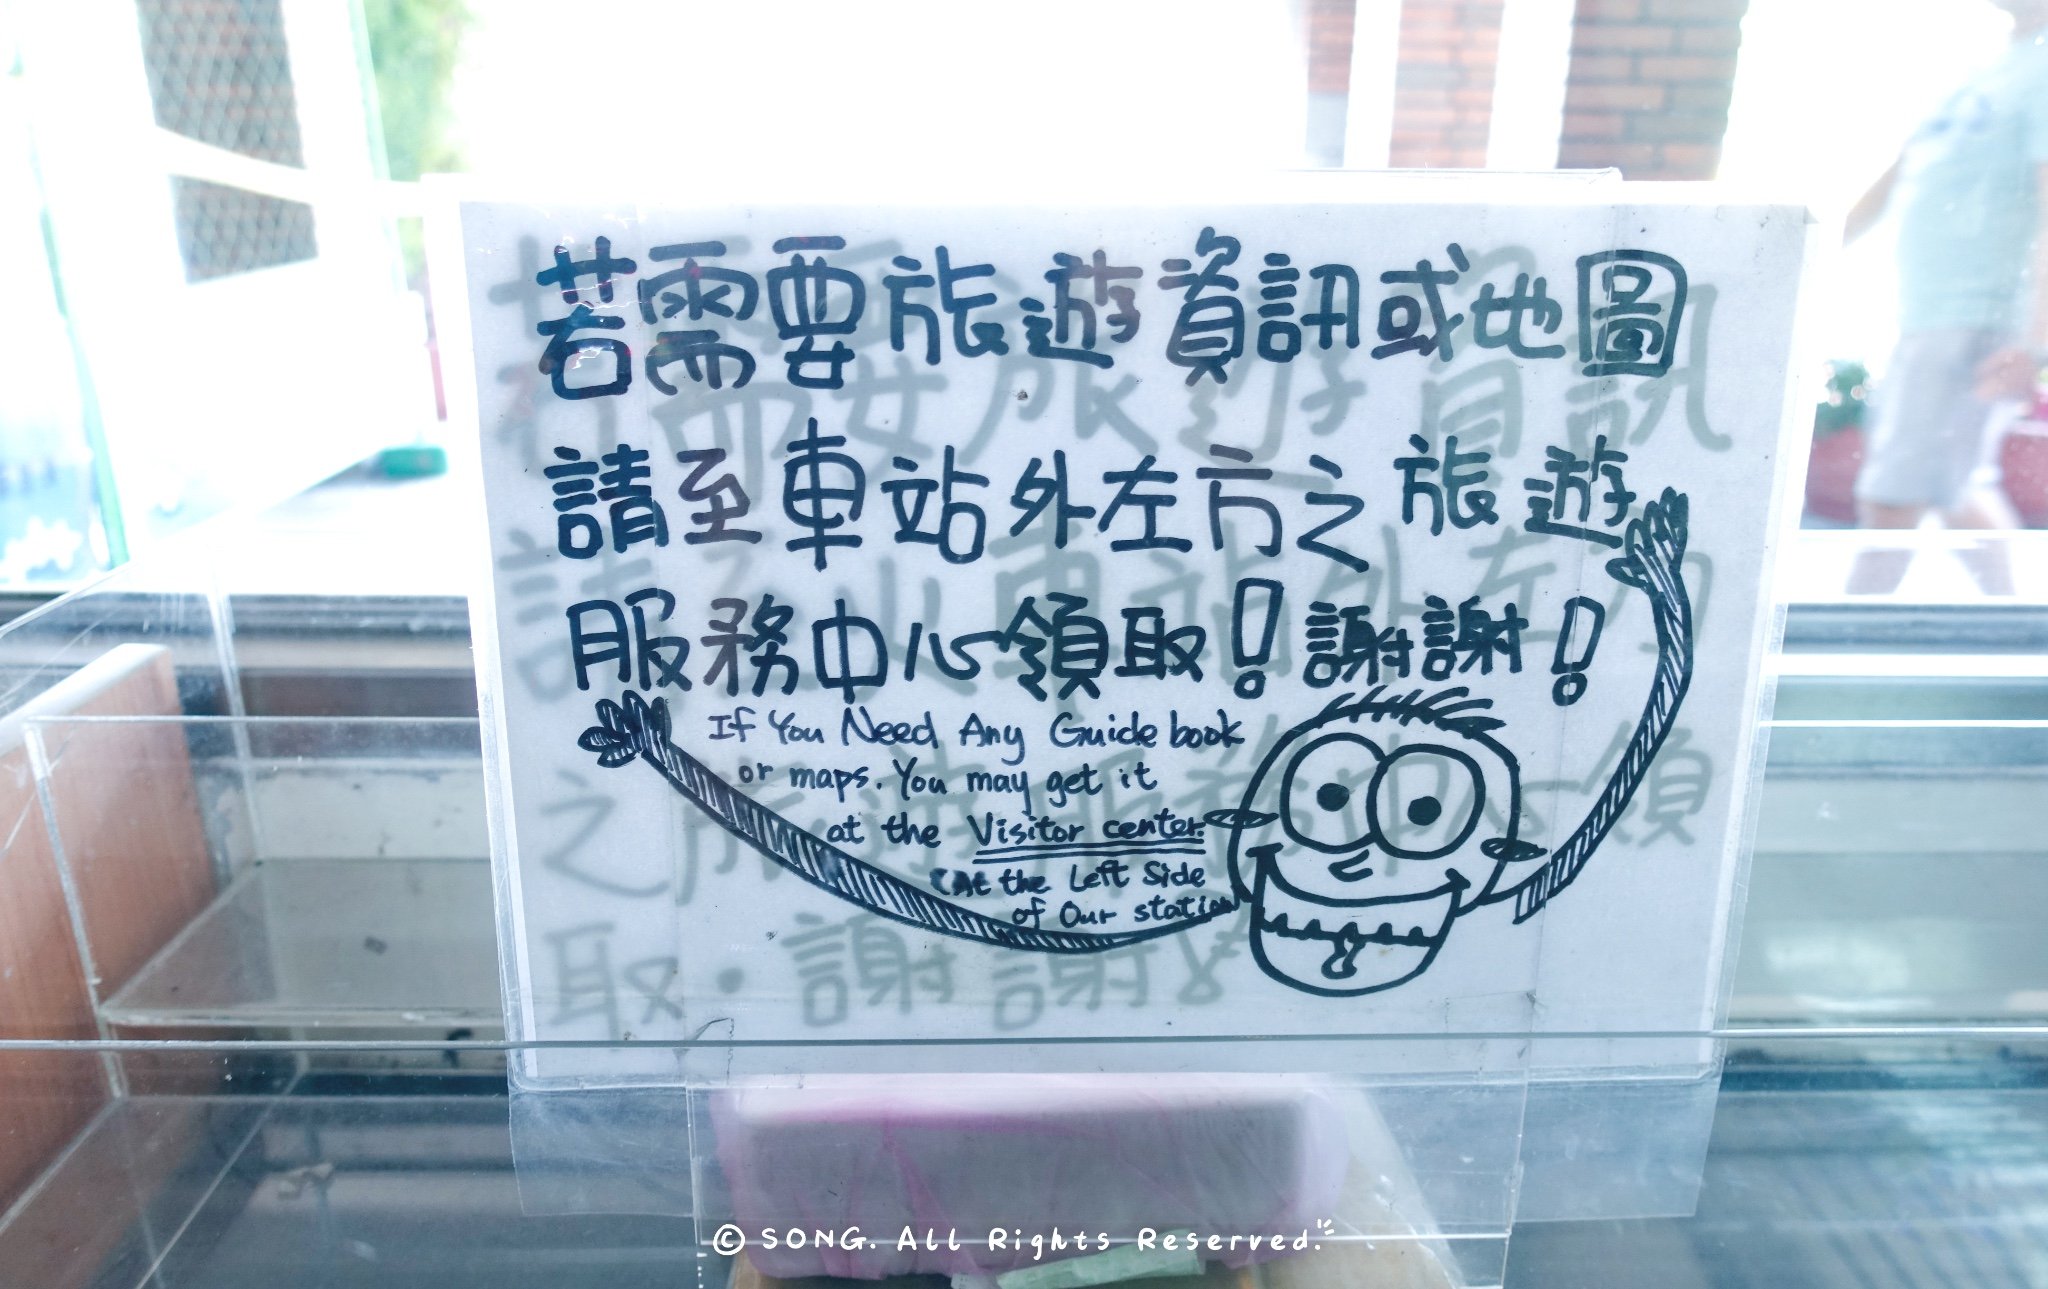 若需要旅遊資訊或地圖
請至車站外左方之旅遊
服務中心領取！謝謝！
If You Need Any Guide book
or maps. You may get it
at the Visitor center.
(At the Left Side
of Our station
© SONG. All Rights Reserved.